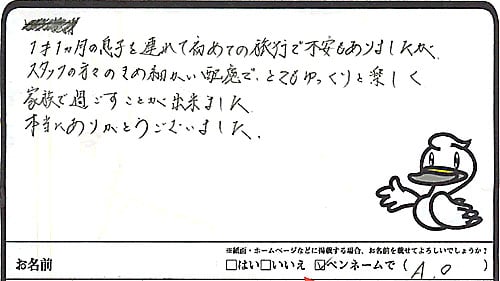 1才1ヶ月の息子を連れて初めての旅行で不安もありましたが、
スタッフの方々のきめ細かい配慮で、とてもゆっくりと楽しく
家族で過ごすことが出来ました。
本当にありがとうございました。
※紙面・ホームページなどに掲載する場合、お名前を載せてよろしいでしょうか?
お名前 □はい□いいえ ☑ペンネームで ( A.O )